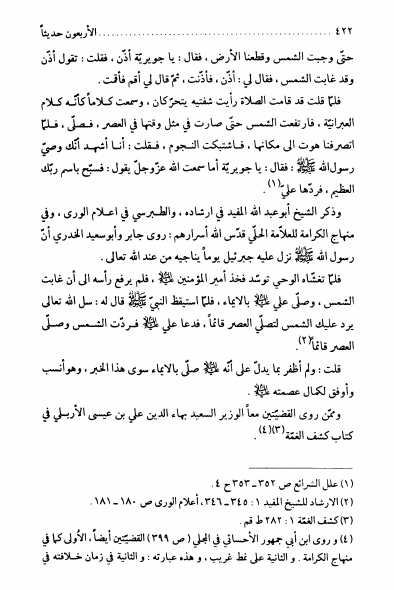 ٤٢٢ ........................................ الأربعون حديثاً
حتّى وجبت الشمس وقطعنا الأرض ، فقال : يا جويريّة أذّن ، فقلت : تقول أذّن
وقد غابت الشمس ، فقال لي : أذّن ، فأذّنت ، ثمّ قال لي أقم فأقت .
فلمّا قلت قد قامت الصلاة رأيت شفتيه يتحرّكان ، وسمعت كلاماً كأنّه كلام
العبرانيّة ، فارتفعت الشمس حتّى صارت في مثل وقتها في العصر ، فصلّى ، فلمّا
انصرفنا هوت الى مكانها ، فاشتبكت النجوم ، فقلت : أنا أشهد أنّك وصيّ
رسول الله ﷺ : فقال : يا جويريّة أما سمعت الله عزّوجلّ يقول : فسبّح باسم ربّك
العظيم ، فردّها عليّ (١) .
وذكر الشيخ أبوعبد الله المفيد في ارشاده ، والطبرسي في اعلام الورى ، وفي
منهاج الكرامة للعلاّمة الحلّي قدّس الله أسرارهم : روى جابر وأبوسعيد الخدري أنّ
رسول الله ﷺ نزل عليه جبرئيل يوماً يناجيه من عند الله تعالى .
فلمّا تغشّاه الوحي توسّد فخذ أمير المؤمنين ﷷ ، فلم يرفع رأسه الى أن غابت
الشمس ، وصلّى علي ﷷ بالايماء ، فلمّا استيقظ النبيّ ﷺ قال له : سل الله تعالى
يرد عليك الشمس لتصلّي العصر قائماً ، فدعا علي ﷷ فردّت الشمس وصلّى
العصر قائماً (٢) .
قلت : ولم أظفر بما يدلّ على أنّه ﷷ صلّى بالايماء سوى هذا الخبر ، وهوأنسب
وأوفق لكمال عصمته ﷷ .
وممّن روى القضيّتين معاً الوزير السعيد بهاء الدين علي بن عيسى الأربلي في
كتاب كشف الغمّة (٣)(٤) .
(١) علل الشرائع ص ٣٥٢ ـ ٣٥٣ ح ٤ .
(٢) الارشاد للشيخ المفيد ١ : ٣٤٥ ـ ٣٤٦ ، أعلام الورى ص ١٨٠ ـ ١٨١ .
(٣) كشف الغمّة ١ : ٢٨٢ ط قم .
(٤) و روى ابن أبي جمهور الأحسائي في المجلي (ص ٣٩٩) القضيّتين أيضاً ، الأولى كما في
منهاج الكرامة . و الثانية على نمط غريب ، و هذه عبارته : و الثانية في زمان خلافته في